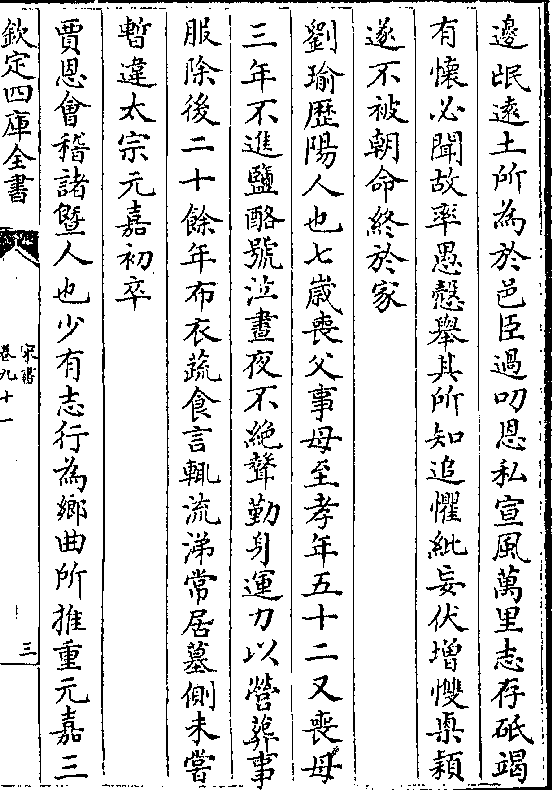 邊氓遠土所為於邑臣過叨恩私宣風萬里志存砥竭
有懷必聞故率愚慤舉其所知追懼紕妄伏增慙慄頴
遂不被朝命終於家
劉瑜歴陽人也七歳喪父事母至孝年五十二又喪母
三年不進鹽酪號泣晝夜不絶聲勤身運力以營葬事
服除後二十餘年布衣蔬食言輒流涕常居墓側未嘗
暫違太宗元嘉初卒
賈恩會稽諸暨人也少有志行為鄉曲所推重元嘉三
欽定四庫全書
宋書
卷九十一
三